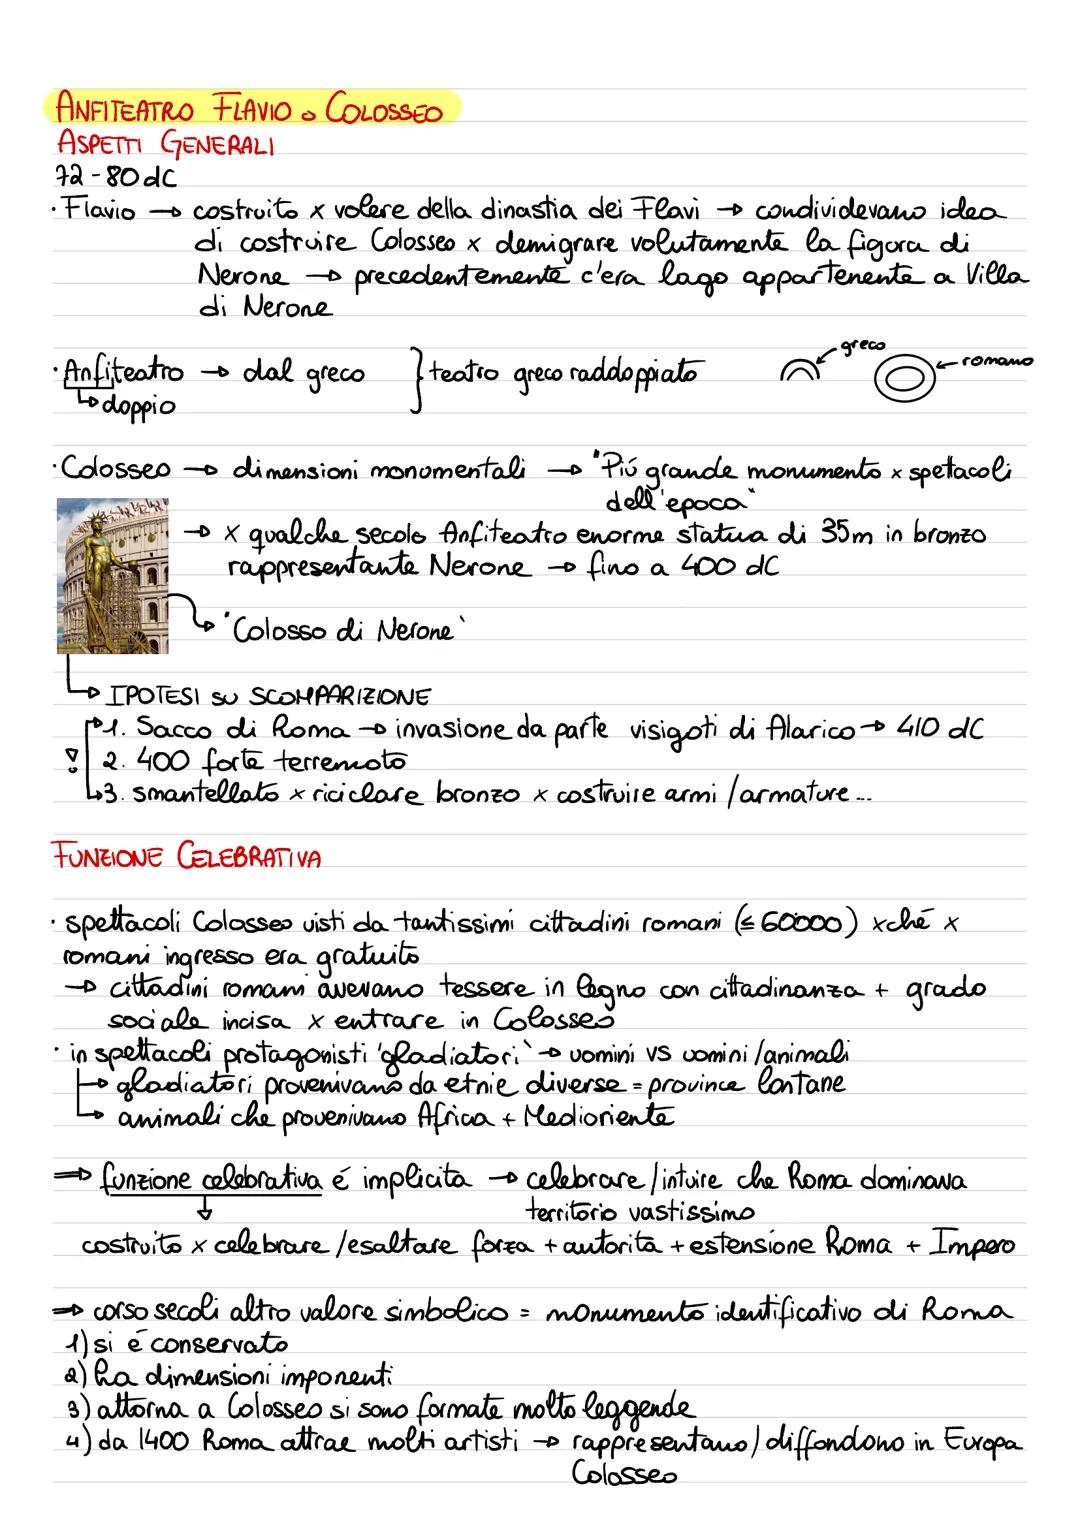 ANFITEATRO FLAVIO o COLOSSEO
ASPETTI GENERALI
72-80 dC
· Flavio → costruito x volere della dinastia dei Flavi → condividevano idea
di costruire Colosseo x demigrare volutamente la figura di
Nerone → precedentemente c'era lago appartenente a Villa
di Nerone
greco
romano
· Anfiteatro → dal greco } teatro greco raddoppiato
↳ doppio
· Colosseo → dimensioni monumentali → "Piú grande monumento x spettacoli
dell'epoca"
→ x qualche secolo Anfiteatro enorme statua di 35m in bronzo
rappresentante Nerone → fino a 400 dC
↳ 'Colosso di Nerone'
↳ IPOTESI SU SCOMPARIZIONE
1. Sacco di Roma → invasione da parte visigoti di Alarico → 410 dC
! 2. 400 forte terremoto
3. smantellato x riciclare bronzo x costruire armi /armature...
FUNZIONE CELEBRATIVA
· spettacoli Colosseo visti da tantissimi cittadini romani (≤ 60000) xché x
romani ingresso era gratuito
→ cittadini romani avevano tessere in legno con cittadinanza + grado
sociale incisa x entrare in Colosseo
· in spettacoli protagonisti 'gladiatori' → uomini VS uomini /animali
↳ gladiatori provenivano da etnie diverse = province lontane
↳ animali che provenivano Africa + Medioriente
⇒ funzione celebrativa é implicita → celebrare /intuire che Roma dominava
territorio vastissimo
↓
costruito x celebrare /esaltare forza + autorita + estensione Roma + Impero
⇒ corso secoli altro valore simbolico = monumento identificativo di Roma
1) si é conservato
2) ha dimensioni imponenti
3) attorna a Colosseo si sono formate molto leggende
4) da 1400 Roma attrae molti artisti → rappresentano / diffondono in Europa
Colosseo